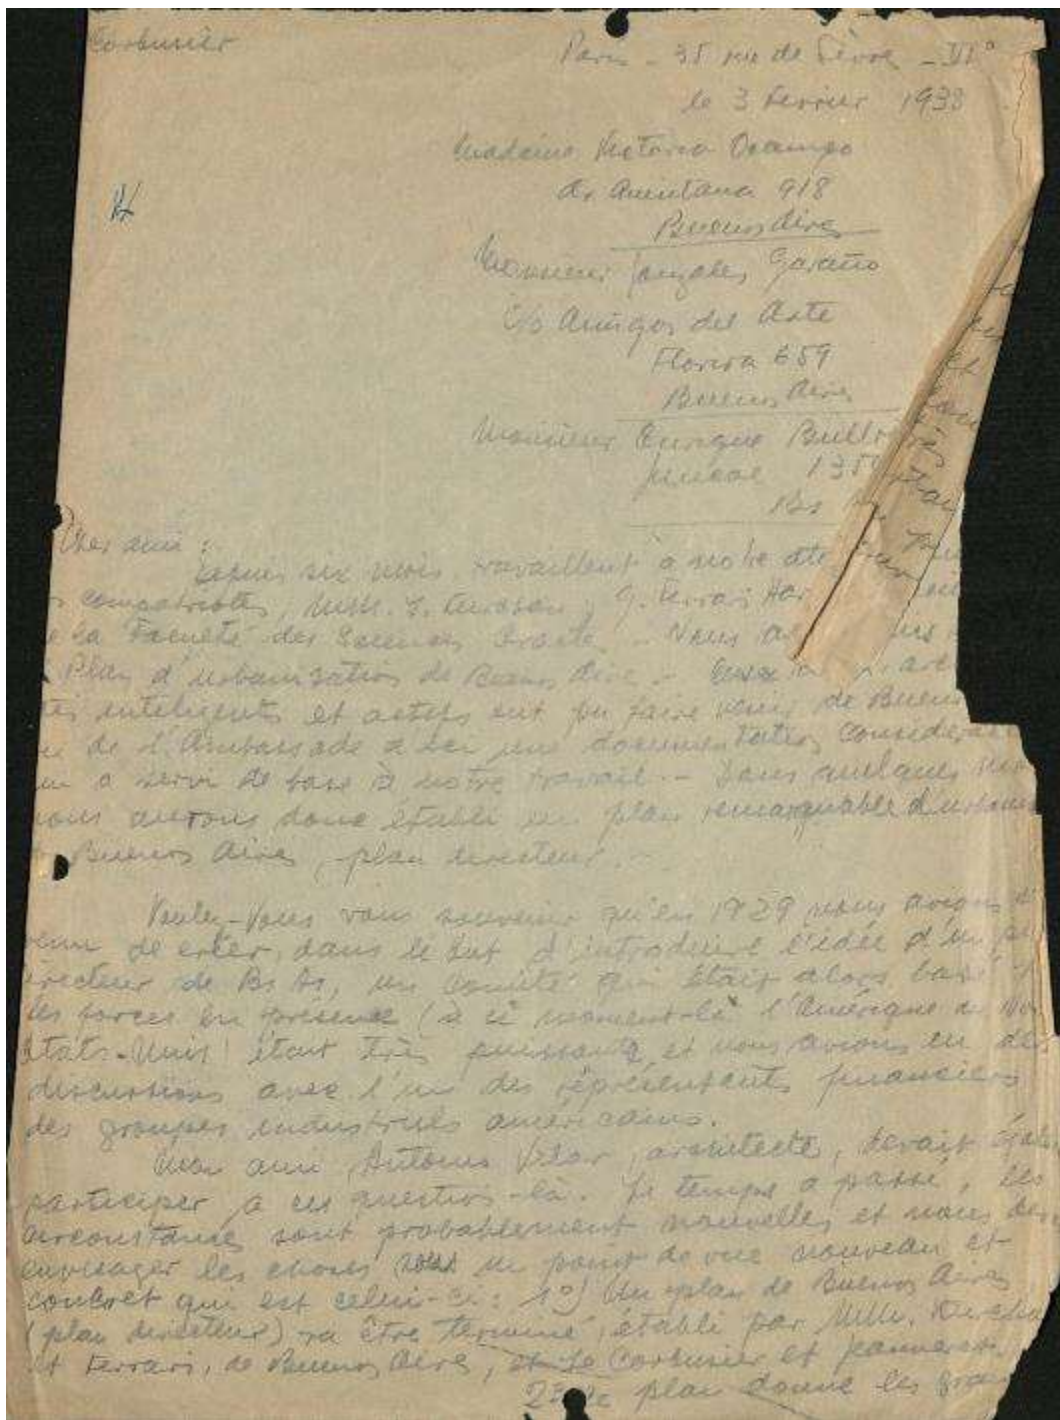 Corbusier
Paris - 35 rue de Sèvres - VI°
le 3 Fevrier 1938
Madame Victoria Ocampo
Quintana 918
Buenos Aires
Monsieur Gonzales Garaño
c/o Amigos del Arte
Florida 659
Buenos Aires
Monsieur Enrique Bullr
Juncal 135
Bs
Cher ami :
Depuis six mois, travaillent à notre ate
compatriotes, MM. J. Kurchan, J. Ferrari Har
de la Faculté des Sciences Exactes.
Plan d'urbanisation de Buenos Aires.-
intelligents et actifs ont pu faire venir de Buenos
de l'Ambassade d'ici une documentation considéra
a servi de base à notre travail.- Dans quelques
nous aurons donc établi un plan remarquable d'urbanis
Buenos Aires, plan directeur.-
Veulez-vous vous souvenir qu'en 1929 nous avions
de créer, dans le but d'introduire l'idée d'un
irecteur de Bs As, un comité qui était alors basé
les forces en présence (à ce moment-là l'Amérique du No
Etats-Unis) était très puissante, et nous avions eu des
discussions avec l'un des réprésentants financiers
des groupes industriels américains.
Mon ami Antonio Vilar, architecte, devait égale
participer à ces question-là. Le temps a passé, les
circonstances sont probablement nouvelles et nous
envisager les choses sous un point de vue nouveau et
concret qui est celui-ci : 1°) Un plan de Buenos Aires
(plan directeur) va être terminé, établi par MM. Kurchan
et Ferrari, de Buenos Aires, et Le Corbusier et Jeanneret.
2° Le plan donne les gran